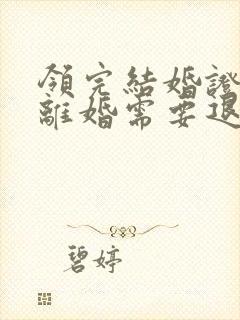 領完結婚證
離婚需要退
碧婷